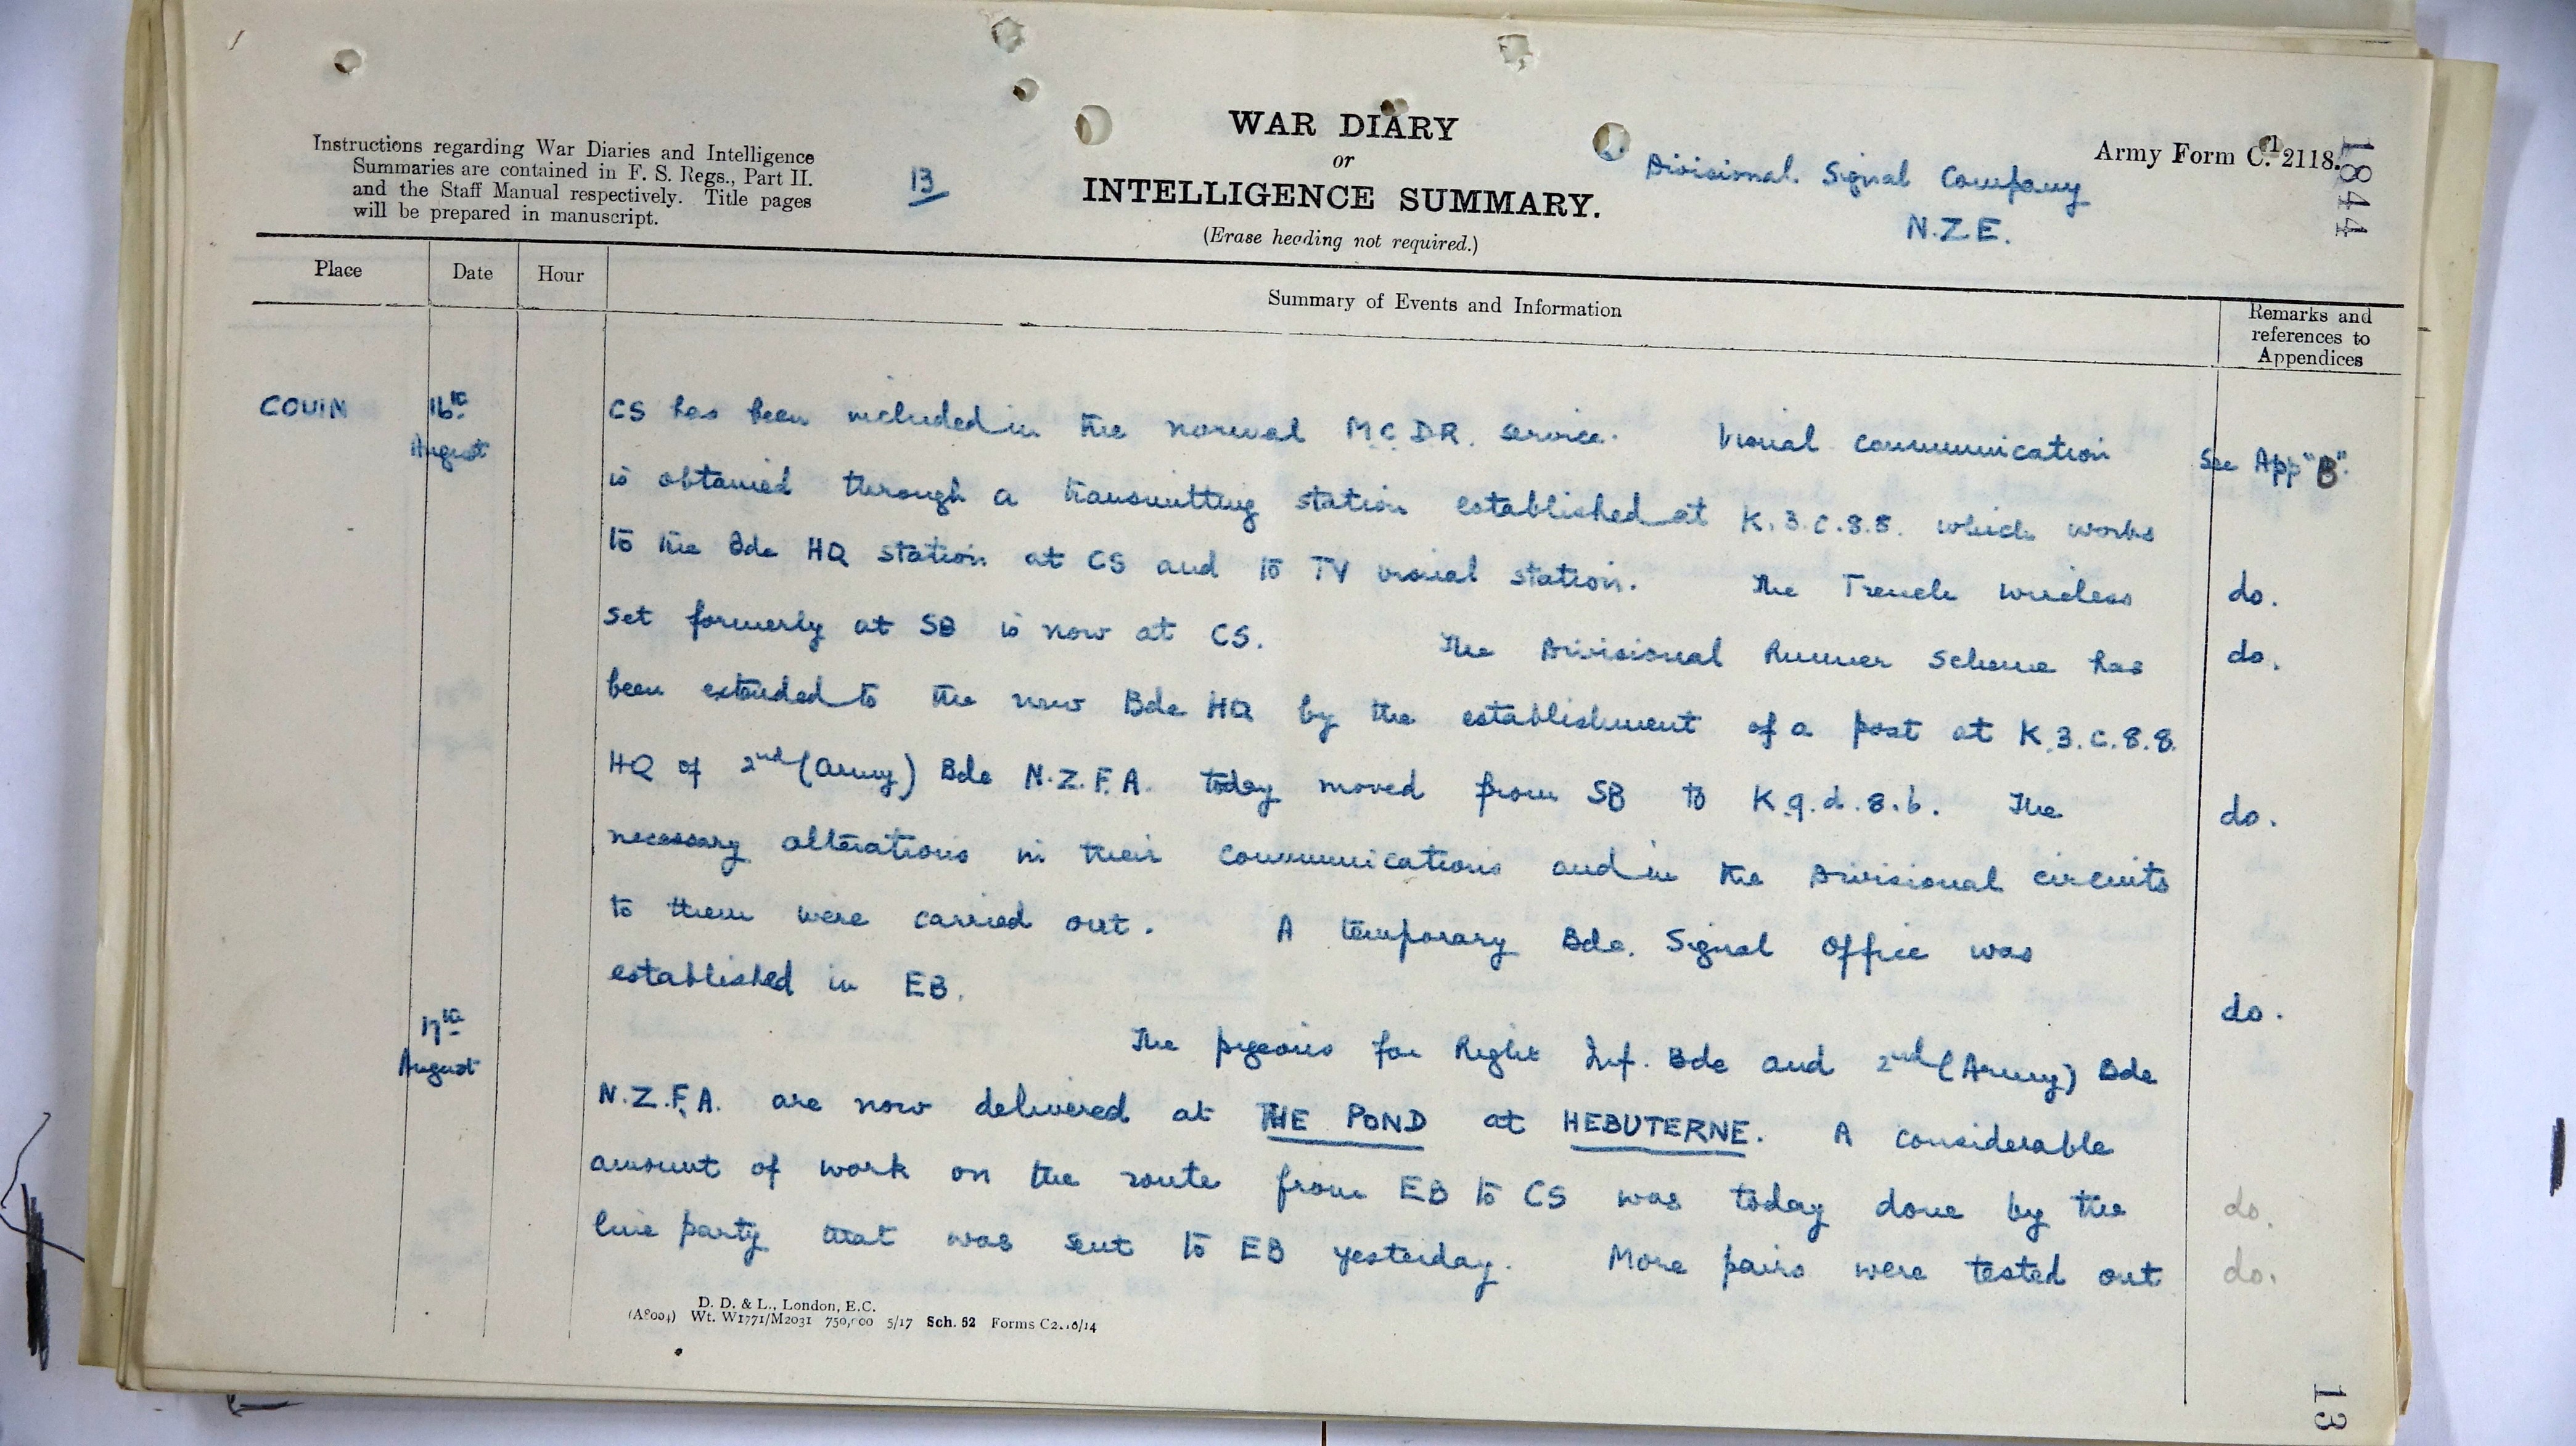 Instructions regarding War Diaries and Intelligence
Summaries are contained in F. S. Regs., Part II.
and the Staff Manual respectively. Title pages
will be prepared in manuscript.
13
WAR DIARY
or
INTELLIGENCE SUMMARY.
(Erase heading not required.)
Divisional Signal Company
N.Z.E.
Army Form C. 2118.
1844
Place
Date
Hour
Summary of Events and Information
Remarks and
references to
Appendices
COUIN
16th
August
CS has been included in the normal M.C.D.R. service. Visual communication
See App "B".
is obtained through a transmitting station established at K.3.c.8.8. which works
to the Bde HQ station at CS and to TV visual station. The Trench wireless
do.
set formerly at SB is now at CS. The Divisional Runner Scheme has
do.
been extended to the new Bde HQ by the establishment of a post at K.3.c.8.8.
HQ of 2nd (Army) Bde N.Z.F.A. today moved from SB to K.9.d.8.6. The
do.
necessary alterations in their communications and in the Divisional circuits
to them were carried out. A temporary Bde. Signal Office was
established in EB.
do.
17th
August
The pigeons for Right Inf. Bde and 2nd (Army) Bde
N.Z.F.A. are now delivered at THE POND at HEBUTERNE. A considerable
amount of work on the route from EB to CS was today done by the
do.
line party that was sent to EB yesterday. More pairs were tested out
do.
D. D. & L., London, E.C.
(A8004) Wt. W1771/M2031 750,000 5/17 Sch. 52 Forms C2118/14
13